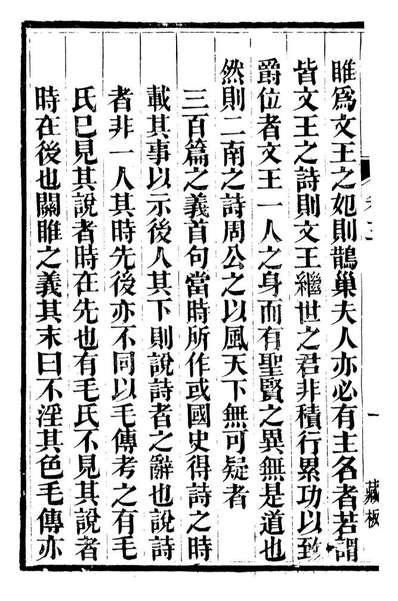 睢爲文王之妃則鵲巢夫人亦必有主名者若謂
皆文王之詩則文王繼世之君非積行累功以致
爵位者文王一人之身而有聖賢之異無是道也
然則二南之詩周公之以風天下無可疑者
三百篇之義首句當時所作或國史得詩之時
載其事以示後人其下則說詩者之辭也說詩
者非一人其時先後亦不同以毛傳考之有毛
氏已見其說者時在先也有毛氏不見其說者
時在後也關睢之義其末曰不淫其色毛傳亦
一
藏板